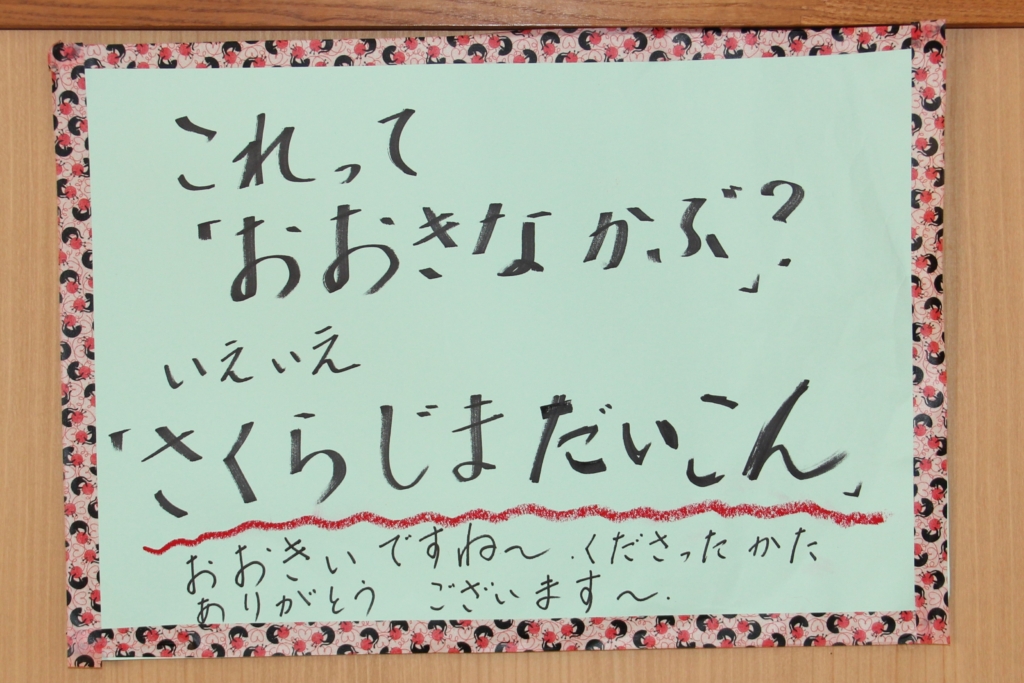 これって
「おおきなかぶ」?
いえいえ
「さくらじまだいこん」
おおきいですね〜.くださったかた
ありがとう ございます〜.